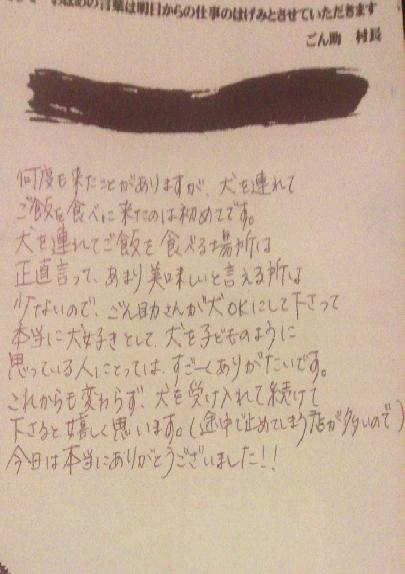 お褒めの言葉は明日からの仕事のはげみとさせていただきます
ごん助 村長
何度も来たことがありますが、犬を連れて
ご飯を食べに来たのは初めてです。
犬を連れてご飯を食べる場所は
正直言って、あまり美味しいと言える所は
少ないので、ごん助さんが犬OKにして下さって
本当に犬好きとして、犬を子どものように
思っている人にとっては、すごーくありがたいです。
これからも変わらず、犬を受け入れて続けて
下さると嬉しく思います。(途中で止めてしまう店が多いので)
今日は本当にありがとうございました!!